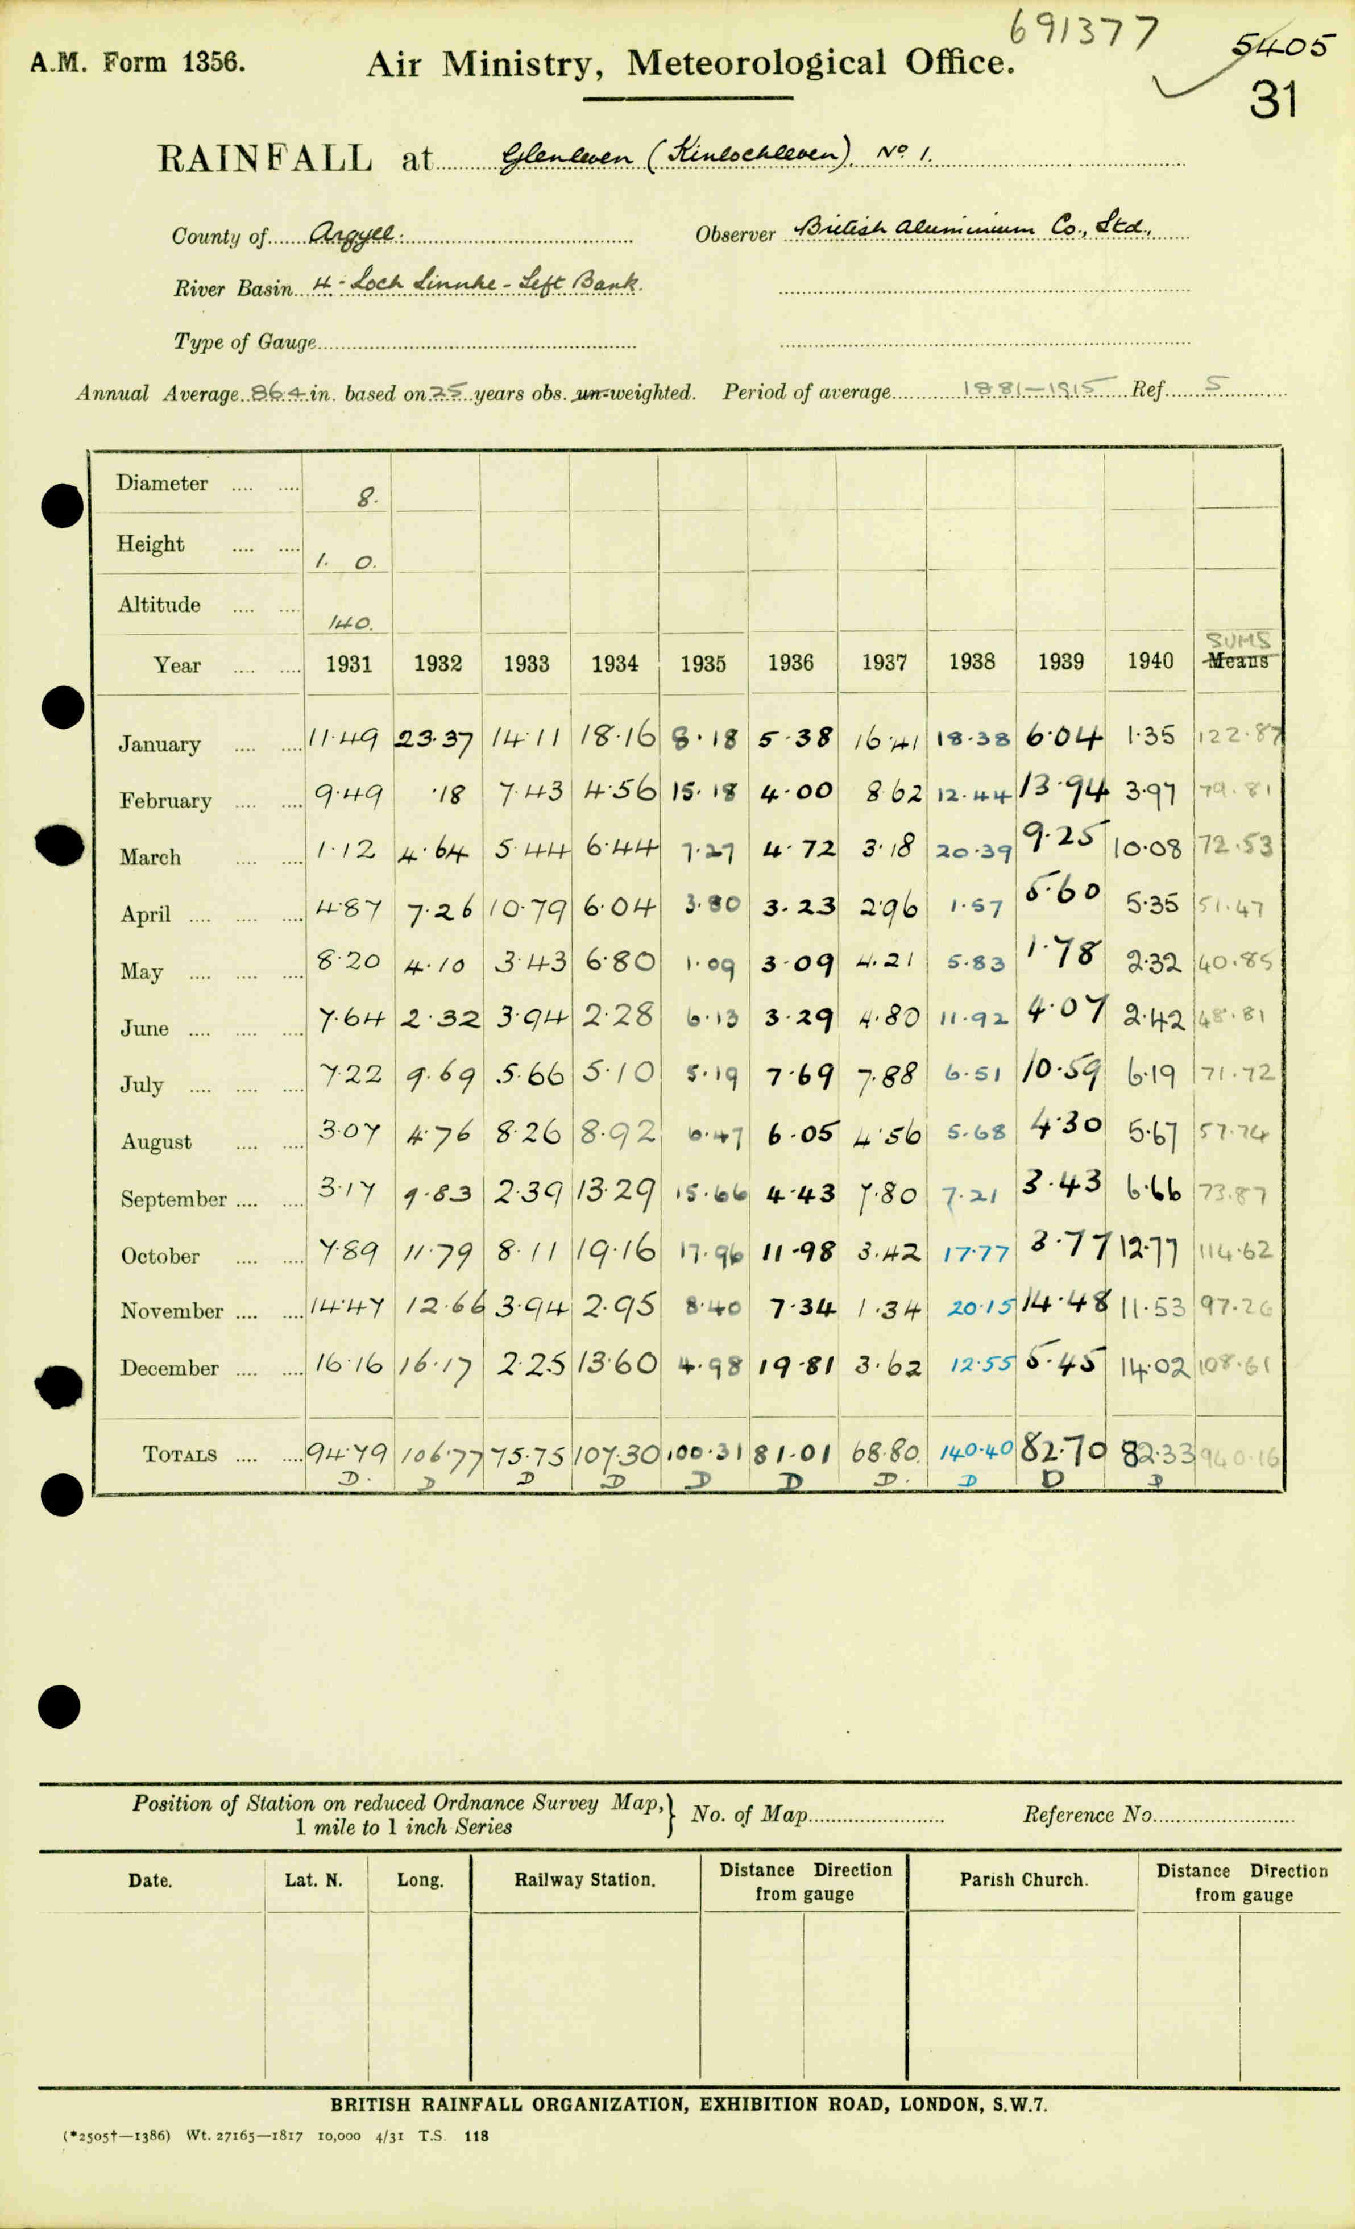 691377
5405
A.M. Form 1356. Air Ministry, Meteorological Office.
31
RAINFALL at Glenleven (Kinlochleven) No 1.
County of Argyll. Observer British Aluminium Co., Ltd.,
River Basin 4 - Loch Linnhe - Left Bank.
Type of Gauge
Annual Average 86.4 in. based on 25 years obs. un-weighted. Period of average 1881-1915 Ref. 5
Diameter 8.
Height 1. 0.
Altitude 140.
SUMS
Year 1931 1932 1933 1934 1935 1936 1937 1938 1939 1940 Means
January 11.49 23.37 14.11 18.16 8.18 5.38 16.41 18.38 6.04 1.35 122.87
February 9.49 .18 7.43 4.56 15.18 4.00 8.62 12.44 13.94 3.97 79.81
March 1.12 4.64 5.44 6.44 7.27 4.72 3.18 20.39 9.25 10.08 72.53
April 4.87 7.26 10.79 6.04 3.80 3.23 2.96 1.57 5.60 5.35 51.47
May 8.20 4.10 3.43 6.80 1.09 3.09 4.21 5.83 1.78 2.32 40.85
June 7.64 2.32 3.94 2.28 6.13 3.29 4.80 11.92 4.07 2.42 48.81
July 7.22 9.69 5.66 5.10 5.19 7.69 7.88 6.51 10.59 6.19 71.72
August 3.07 4.76 8.26 8.92 6.47 6.05 4.56 5.68 4.30 5.67 57.74
September 3.17 9.83 2.39 13.29 15.66 4.43 7.80 7.21 3.43 6.66 73.87
October 7.89 11.79 8.11 19.16 17.96 11.98 3.42 17.77 3.77 12.77 114.62
November 14.47 12.66 3.94 2.95 8.40 7.34 1.34 20.15 14.48 11.53 97.26
December 16.16 16.17 2.25 13.60 4.98 19.81 3.62 12.55 5.45 14.02 108.61
TOTALS 94.79 106.77 75.75 107.30 100.31 81.01 68.80. 140.40 82.70 82.33 940.16
D. D D D D D D. D D D
Position of Station on reduced Ordnance Survey Map, } No. of Map Reference No.
1 mile to 1 inch Series
Date. Lat. N. Long. Railway Station. Distance Direction from gauge Parish Church. Distance Direction from gauge
BRITISH RAINFALL ORGANIZATION, EXHIBITION ROAD, LONDON, S.W.7.
(*2505†—1386) Wt. 27165—1817 10,000 4/31 T.S. 118